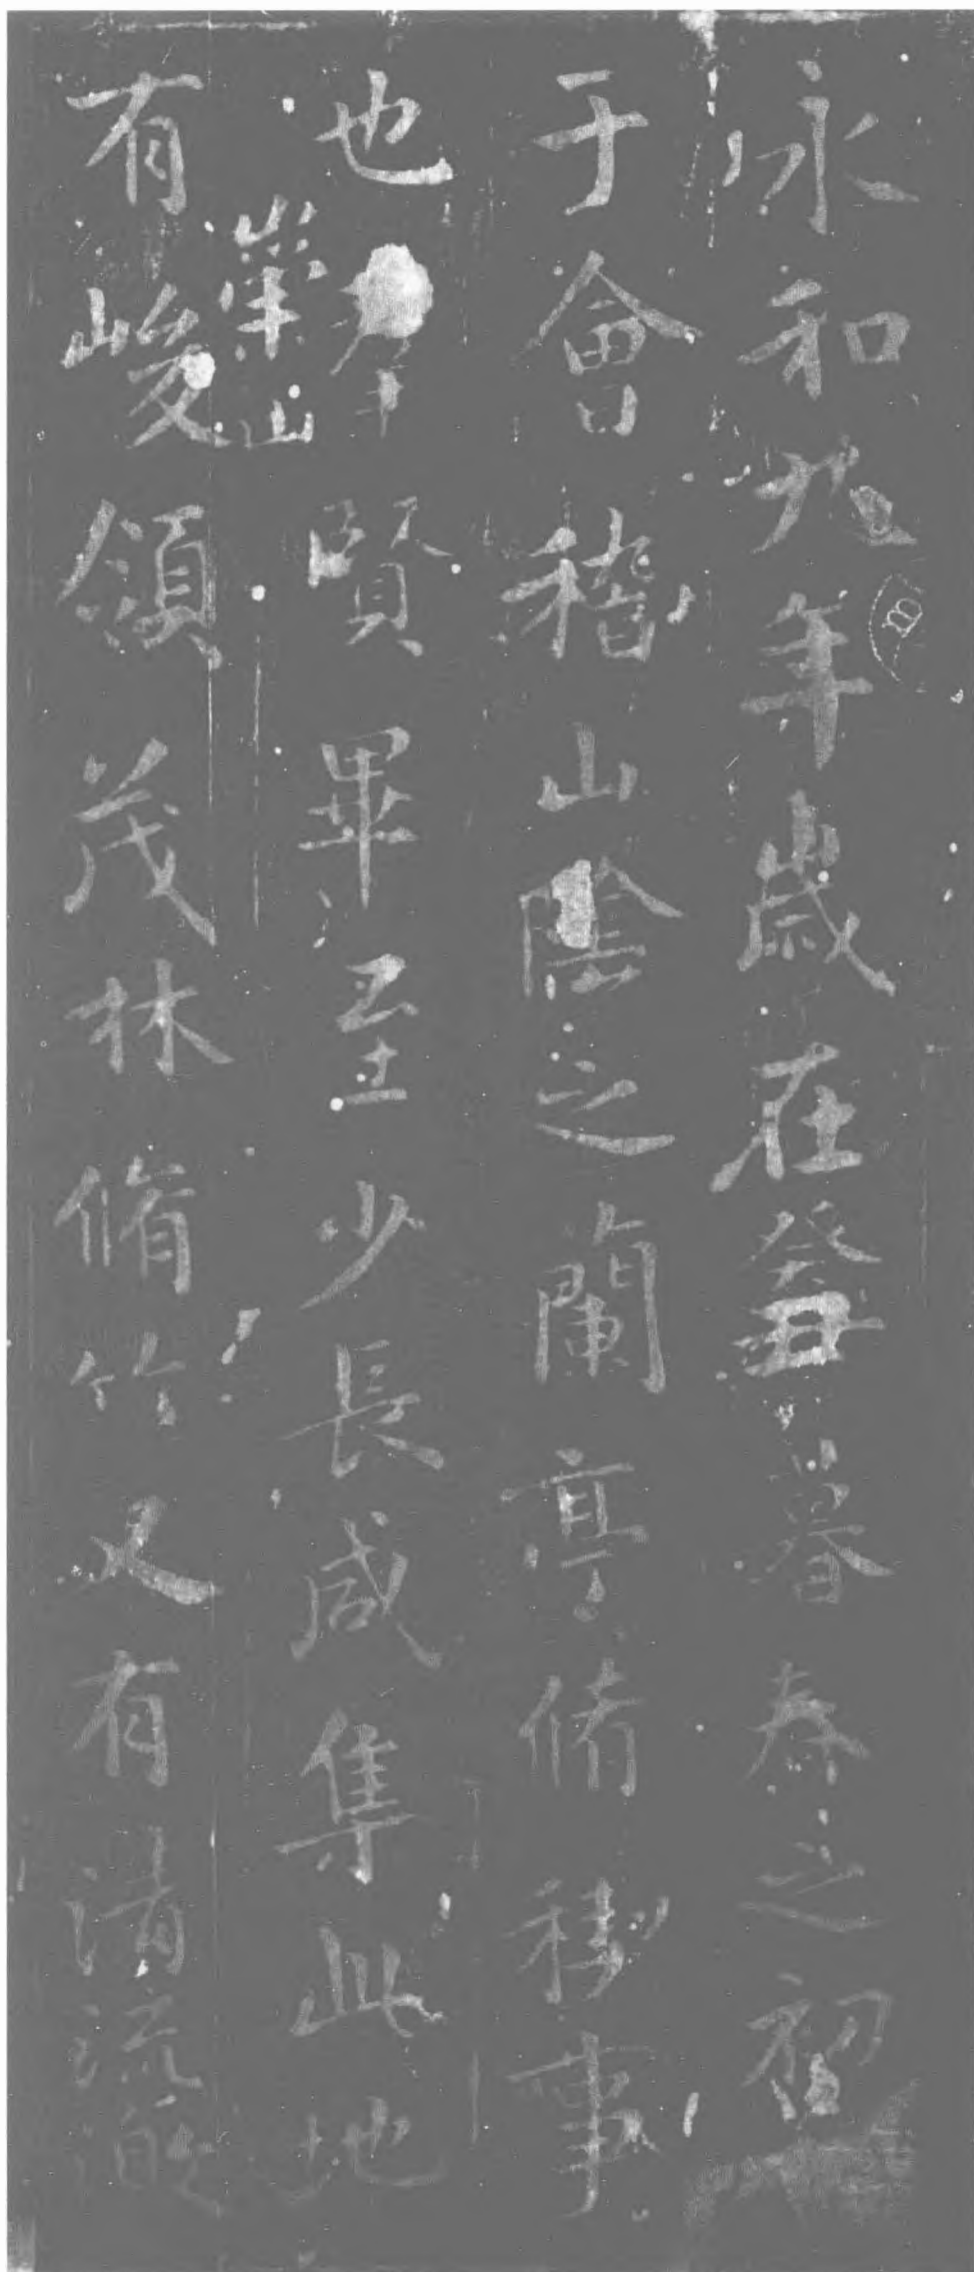 永和九年歲在癸丑暮春之初
于會稽山陰之蘭亭脩禊事
也羣賢畢至少長咸集此地
崇山
有峻領茂林脩竹又有清流激